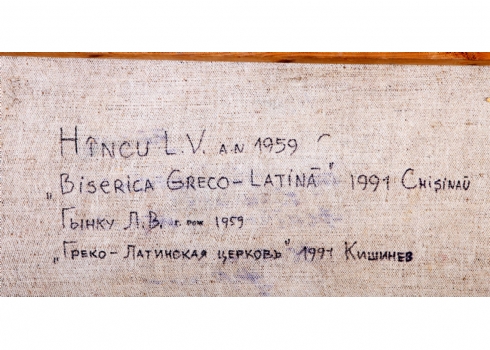 HÎNCU L.V. A.N 1959
„BISERICA GRECO-LATINĂ" 1991 CHIȘINĂU
ГЫНКУ Л.В. г. рож 1959
„ГРЕКО-ЛАТИНСКАЯ ЦЕРКОВЬ" 1991 КИШИНЕВ